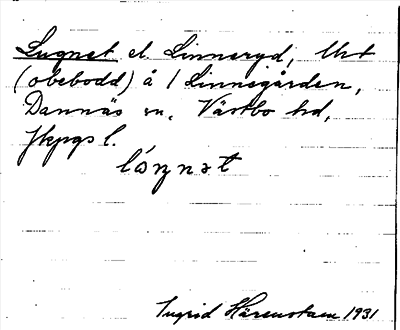 Lugnet el. Linneryd, lht
(obebodd) å 1 Linnegården,
Dannäs sn, Västbo hd,
Jkpgs l.
Ingrid Härenstam 1931